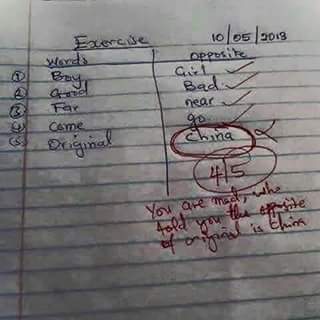 Exercise 10/05/2013
Words opposite
① Boy Girl
② Good Bad
③ Far near
④ come go
⑤ Original China
4/5
You are mad, who
told you the opposite
of original is China